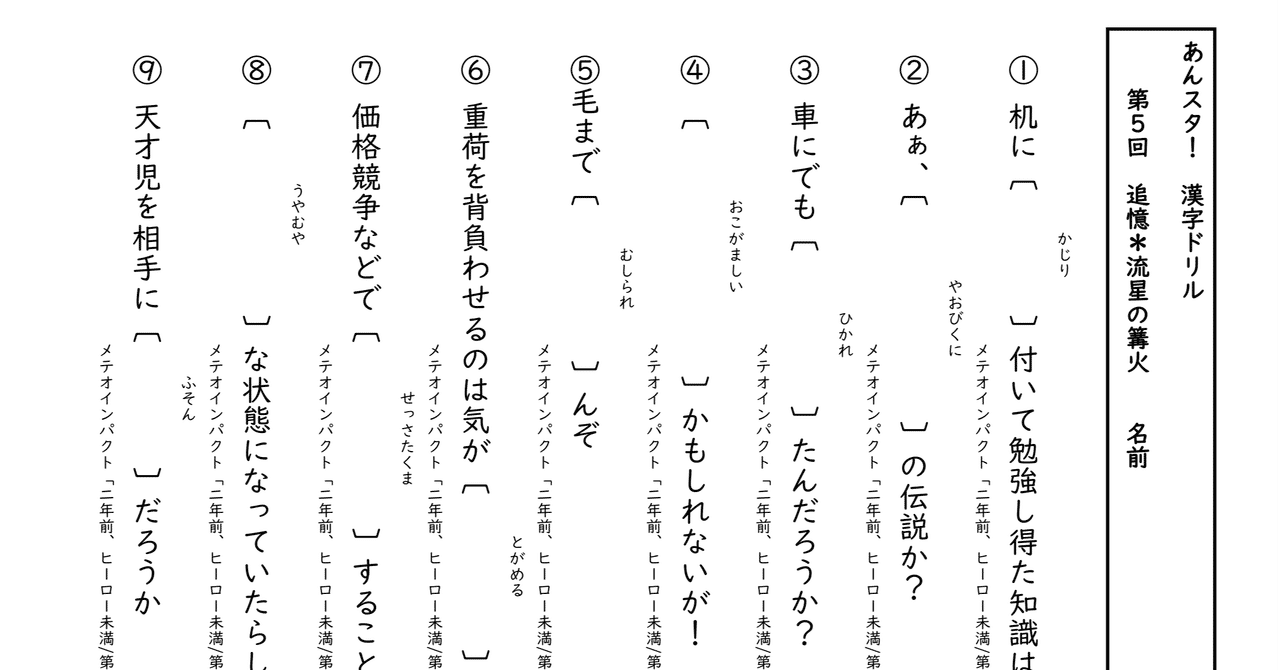 あんスタ！　漢字ドリル
第５回　追憶＊流星の篝火　　名前
かじり
①　机に〔　　　　〕付いて勉強し得た知識は
メテオインパクト「二年前、ヒーロー未満/第
やおびくに
②　あぁ、〔　　　　　　　〕の伝説か？
メテオインパクト「二年前、ヒーロー未満/第
ひかれ
③　車にでも〔　　　　　〕たんだろうか？
メテオインパクト「二年前、ヒーロー未満/第
おこがましい
④　〔　　　　　　　　〕かもしれないが！
メテオインパクト「二年前、ヒーロー未満/第
むしられ
⑤毛まで〔　　　　　〕んぞ
メテオインパクト「二年前、ヒーロー未満/第
とがめる
⑥　重荷を背負わせるのは気が〔　　　　　〕
メテオインパクト「二年前、ヒーロー未満/第
せっさたくま
⑦　価格競争などで〔　　　　　　〕すること
メテオインパクト「二年前、ヒーロー未満/第
うやむや
⑧　〔　　　　　　〕な状態になっていたらし
メテオインパクト「二年前、ヒーロー未満/第
ふそん
⑨　天才児を相手に〔　　　　〕だろうか
メテオインパクト「二年前、ヒーロー未満/第